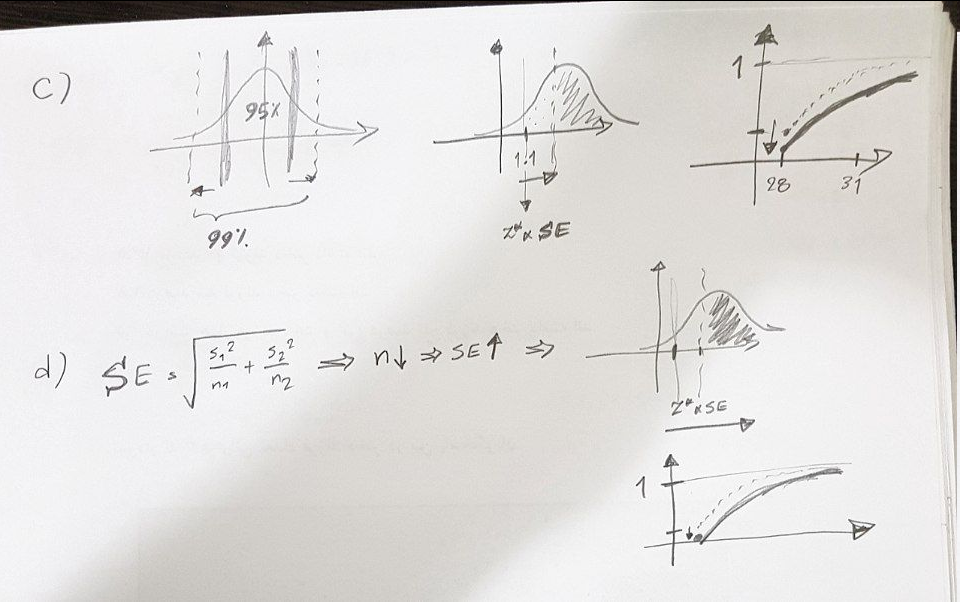 c)
95%
99%
1.1
z* × SE
1
28 31
d) SE = √(s₁²/n₁ + s₂²/n₂) ⇒ n↓ ⇒ SE↑ ⇒
z* × SE
1